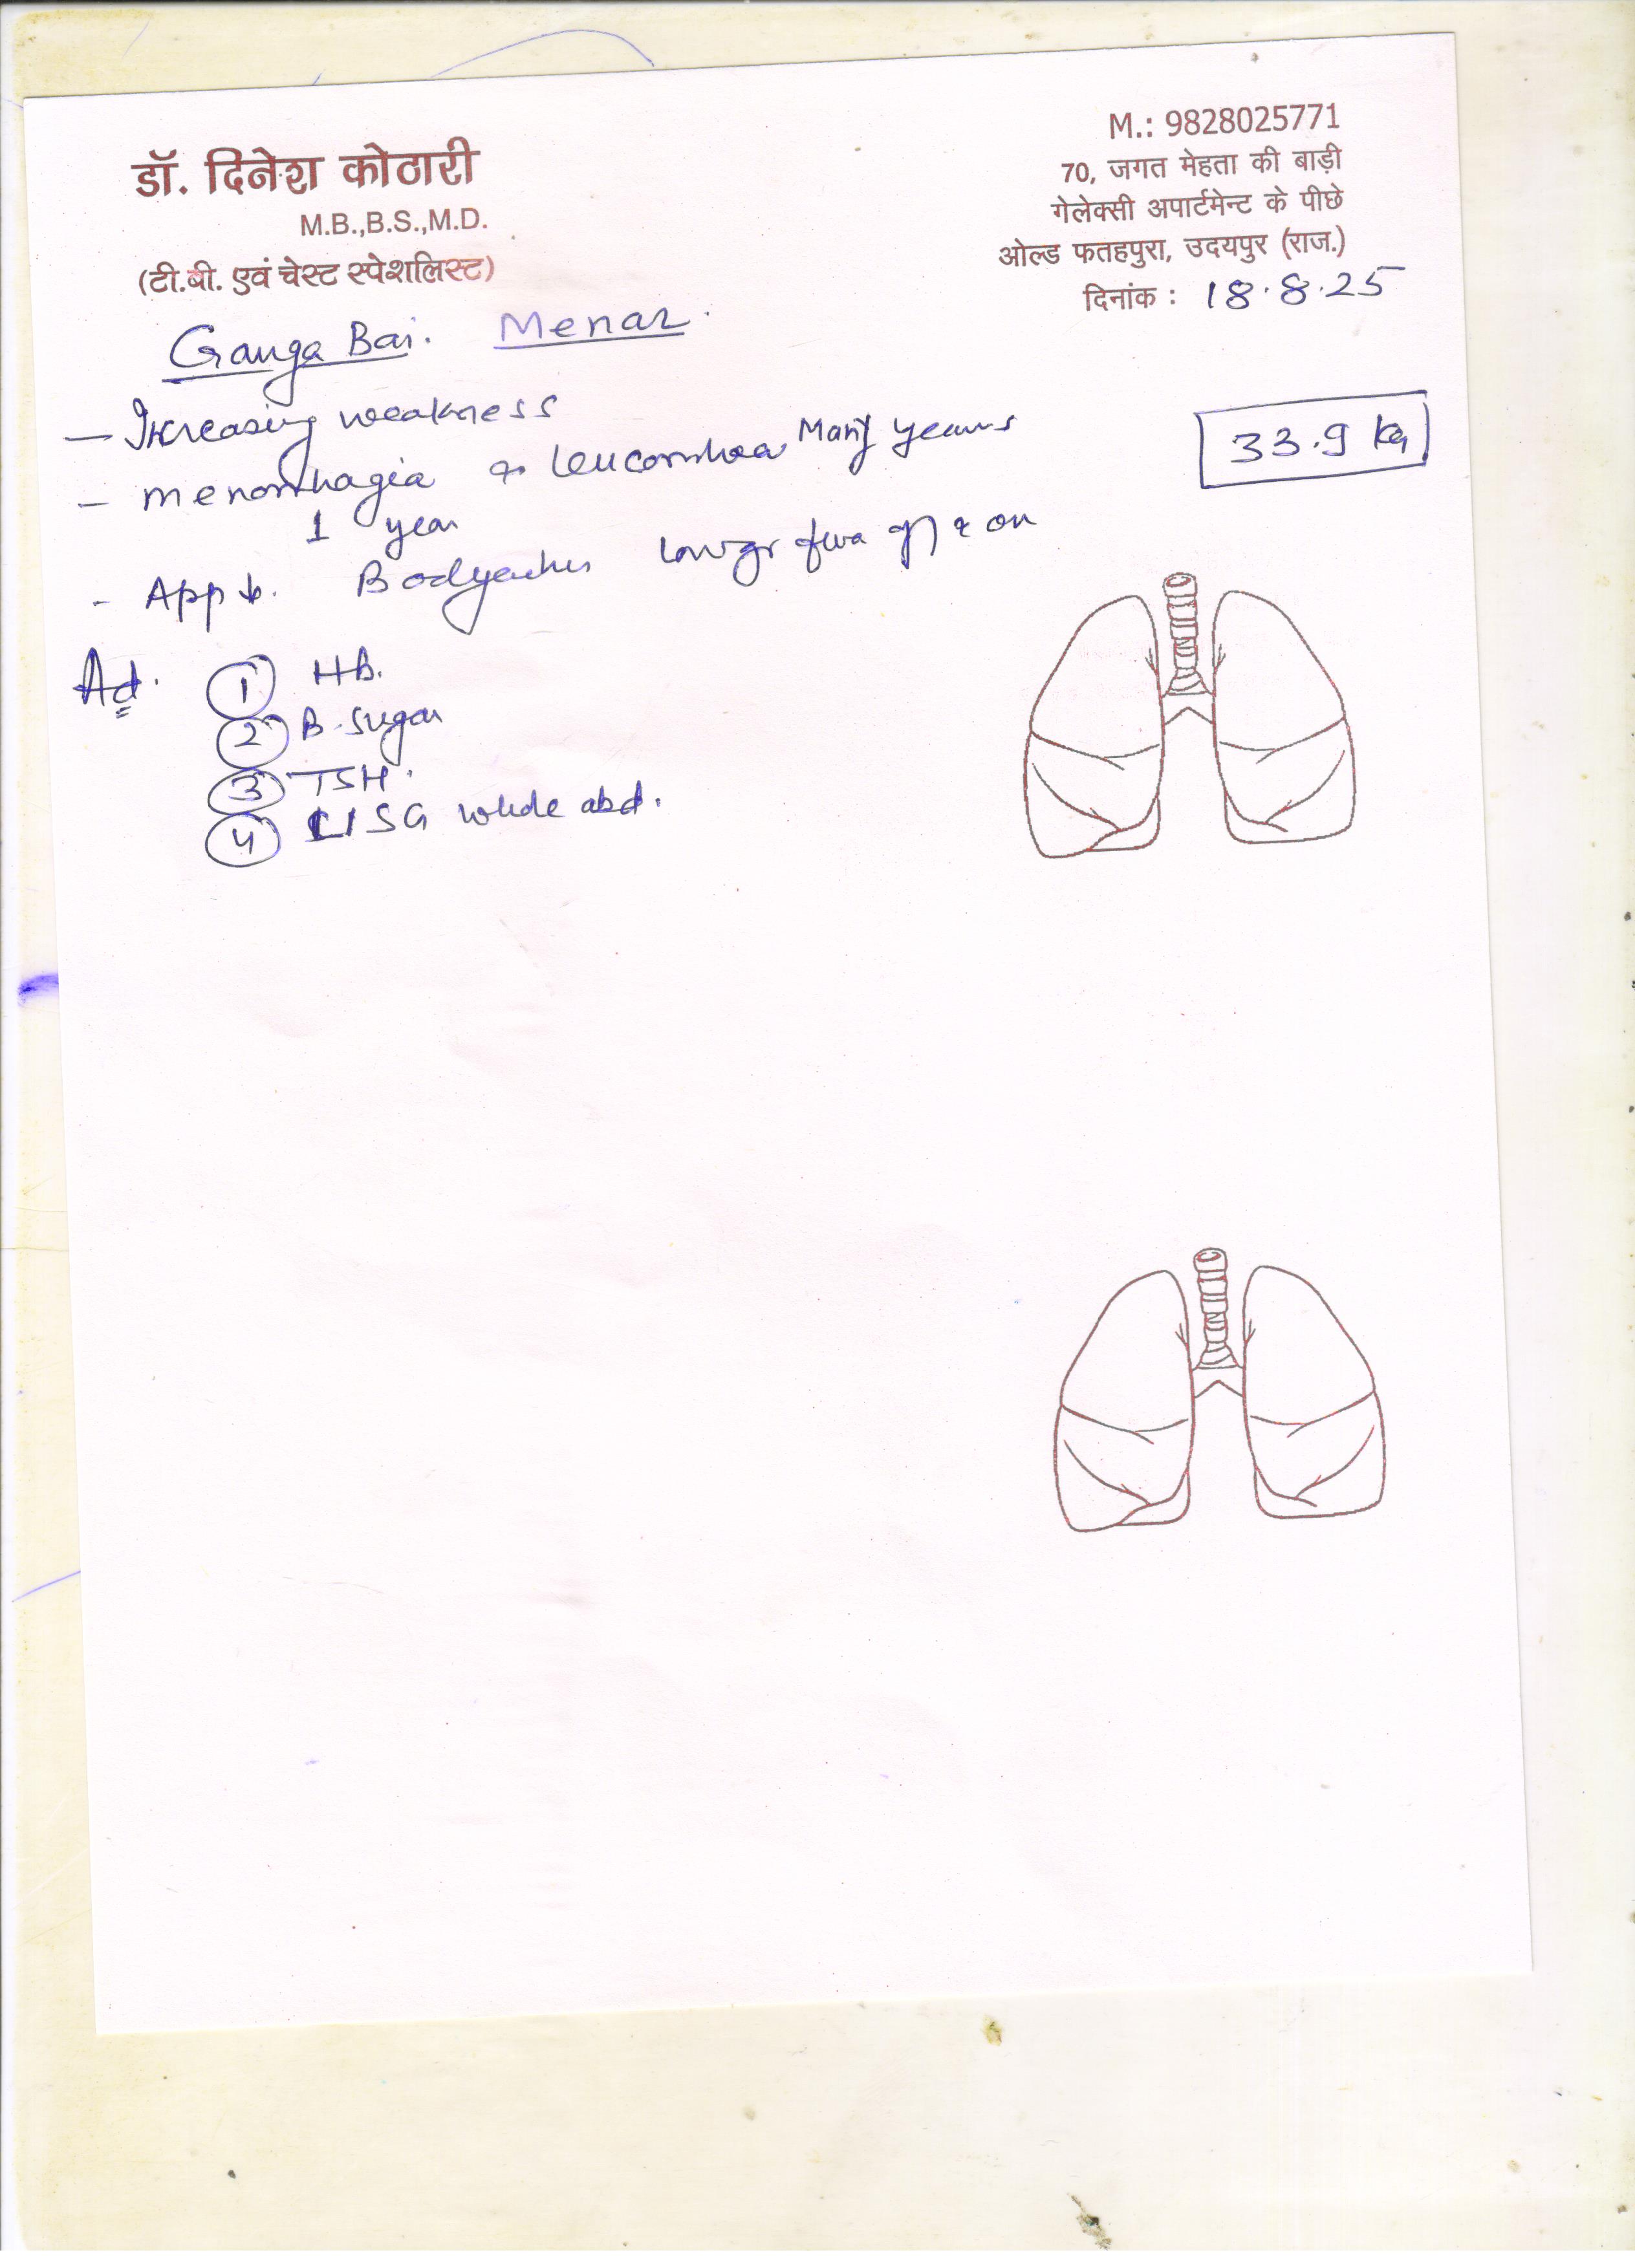 डॉ. दिनेश कोठारी
M.B.,B.S.,M.D.
(टी.बी. एवं चेस्ट स्पेशलिस्ट)
M.: 9828025771
70, जगत मेहता की बाड़ी
गेलेक्सी अपार्टमेन्ट के पीछे
ओल्ड फतहपुरा, उदयपुर (राज.)
दिनांक : 18.8.25
Ganga Bai. Menar.
— Increasing weakness
33.9 kg
- menorrhagia leucorrhoea Many years
1 year
- App ↓. Bodyaches on
Ad.
1 HB.
2 B. sugar
3 TSH.
4 USG whole abd.